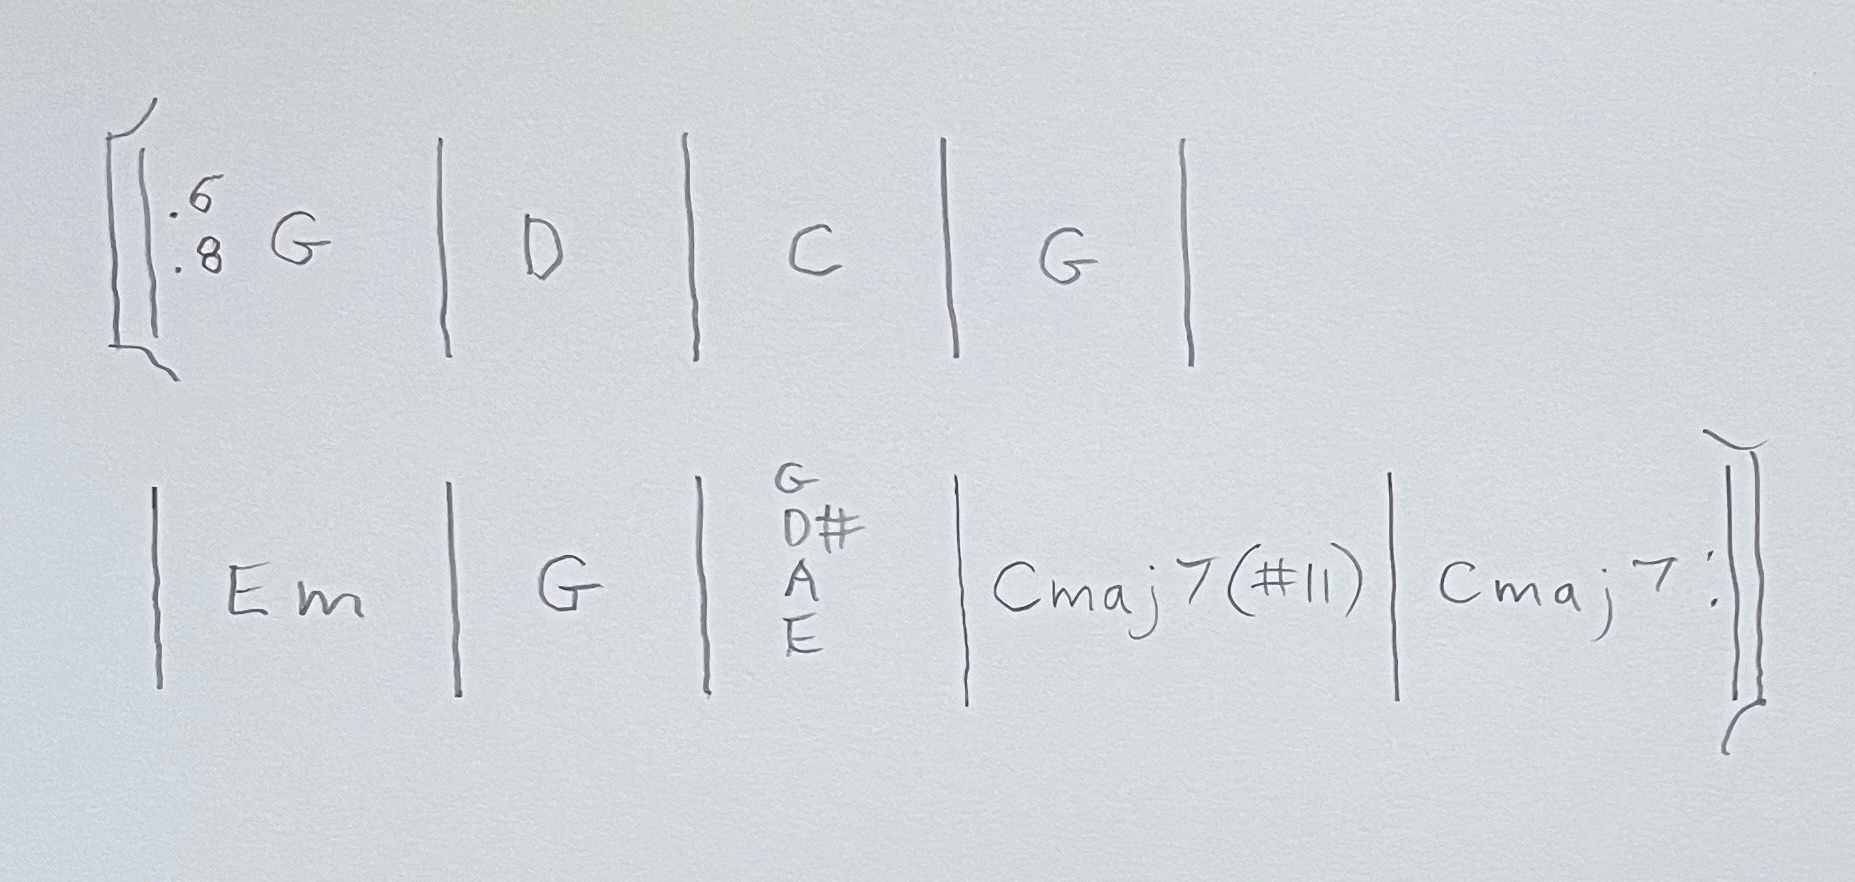 6
8 G | D | C | G |
G
D#
A
E
| Em | G | | Cmaj7(#11) | Cmaj7 :||